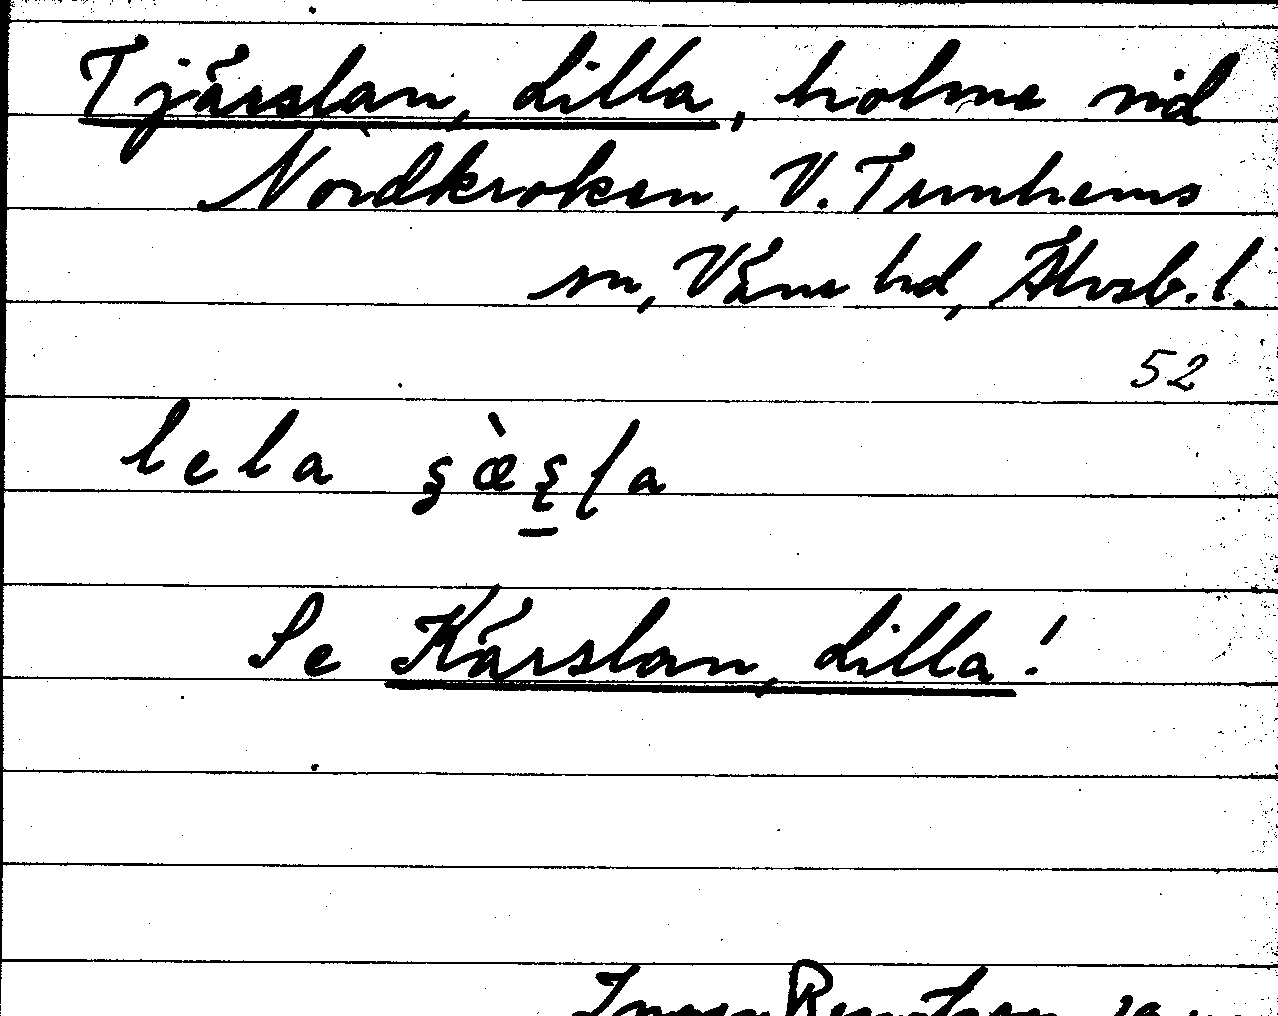 Tjärslan, Lilla, holme vid
Nordkroken, V. Tunhems
sn, Väne hd, Älvsb. l.
52
lela
Se Kärslan, Lilla!